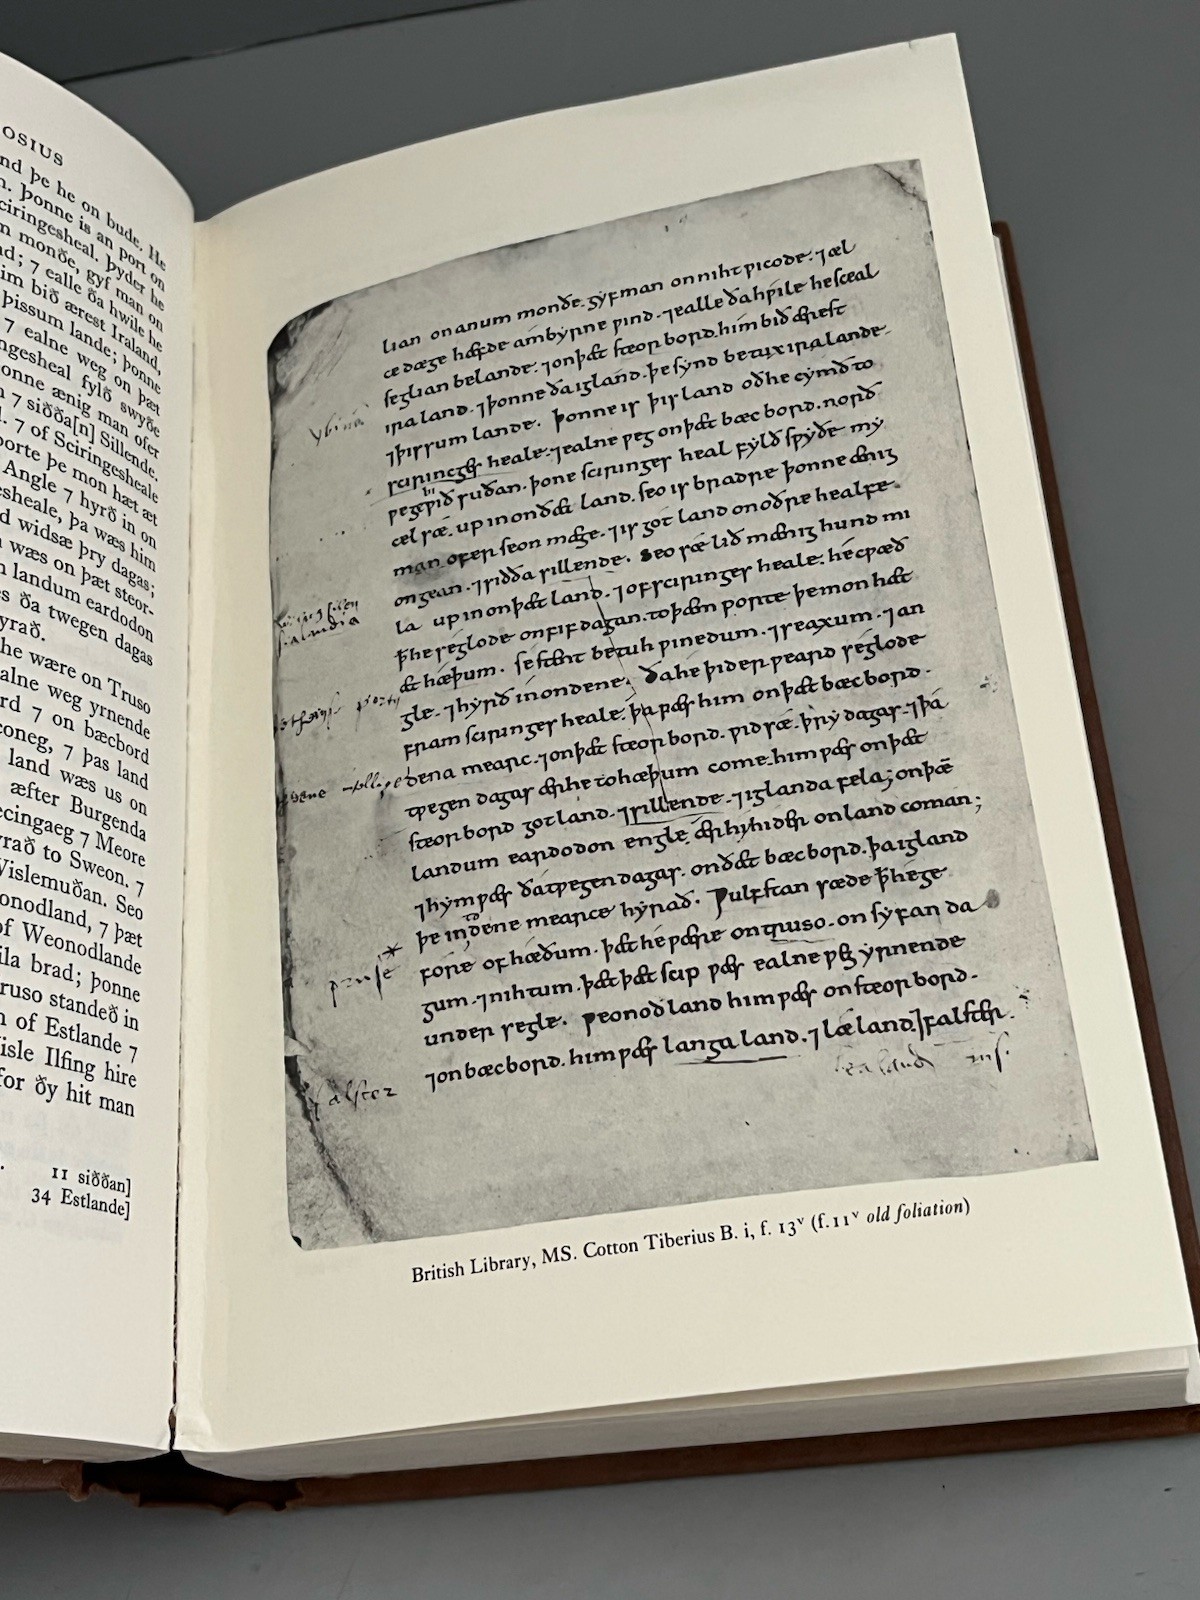 OSIUS
nd þe he on bude. He
n. Þonne is an port on
ciringesheal. Þyder he
n monðe, gyf man on
nd; ⁊ ealle ða hwile he
im bið ærest Iraland,
þissum lande; þonne
⁊ ealne weg on þæt
ngesheal fylð swyðe
onne ænig man ofer
⁊ siðða[n] Sillende.
d. ⁊ of Sciringesheale
porte þe mon hæt æt
Angle ⁊ hyrð in on
esheale, þa wæs him
d widsæ þry dagas;
n wæs on þæt steor-
n landum eardodon
s ða twegen dagas
yrað.
he wære on Truso
alne weg yrnende
rd ⁊ on bæcbord
coneg, ⁊ þas land
land wæs us on
æfter Burgenda
ecingaeg ⁊ Meore
yrað to Sweon. ⁊
Wislemuðan. Seo
onodland, ⁊ þæt
of Weonodlande
ila brad; þonne
ruso standeð in
n of Estlande ⁊
isle Ilfing hire
for ðy hit man
11 siððan]
34 Estlande]
lian on anum monðe. gyf man on niht ƿicode. ⁊ æl
ce dæge hæfde ambyrne ƿind. ⁊ ealle ða hƿile he sceal
seglian be lande. ⁊ on þæt steorbord. him bið ærest
iraland. ⁊ þonne ða igland. þe synd betux iralande.
⁊ þissum lande. Þonne is þis land oð he cymð to
scirincges heale. ⁊ ealne ƿeg on þæt bæcbord. norð
ƿeg ƿið suðan. þone sciringes heal fylð sƿyðe my
cel sæ. up in on ðæt land. seo is bradre þonne ænig
man ofer seon mæge. ⁊ is gotland on oðre healfe.
ongean. ⁊ siðða sillende. Seo sæ lið mænig hund mi
la up in on þæt land. ⁊ of sciringes heale. he cƿæð
ꝥ he seglode on fif dagan. to þæm porte þe mon hæt
æt hæþum. se stent betuh ƿinedum. ⁊ seaxum. ⁊ an
gle. ⁊ hyrð in on dene. Ða he þiderƿeard seglode
fram sciringes heale. þa ƿæs him on þæt bæcbord.
dena mearc. ⁊ on þæt steorbord. ƿid sæ. þry dagas. ⁊ þa
tƿegen dagas ær he to hæþum come. him ƿæs on þæt
steorbord gotland. ⁊ sillende. ⁊ iglanda fela; on þæ̅
landum eardodon engle. ær hy hider on land coman;
⁊ hym ƿæs ða tƿegen dagas. on ðæt bæcbord. þa igland
þe in dene mearce hyrað. Ƿulfstan sæde ꝥ he ge
fore of hæðum. þæt he ƿære on truso. on syfan da
gum. ⁊ nihtum. þæt þæt scip ƿæs ealne ƿeg yrnende
under segle. Ƿeonodland him ƿæs on steorbord.
⁊ on bæcbord. him ƿæs langaland. ⁊ læland. ⁊ falster.
falster
British Library, MS. Cotton Tiberius B. i, f. 13ᵛ (f. 11ᵛ old foliation)